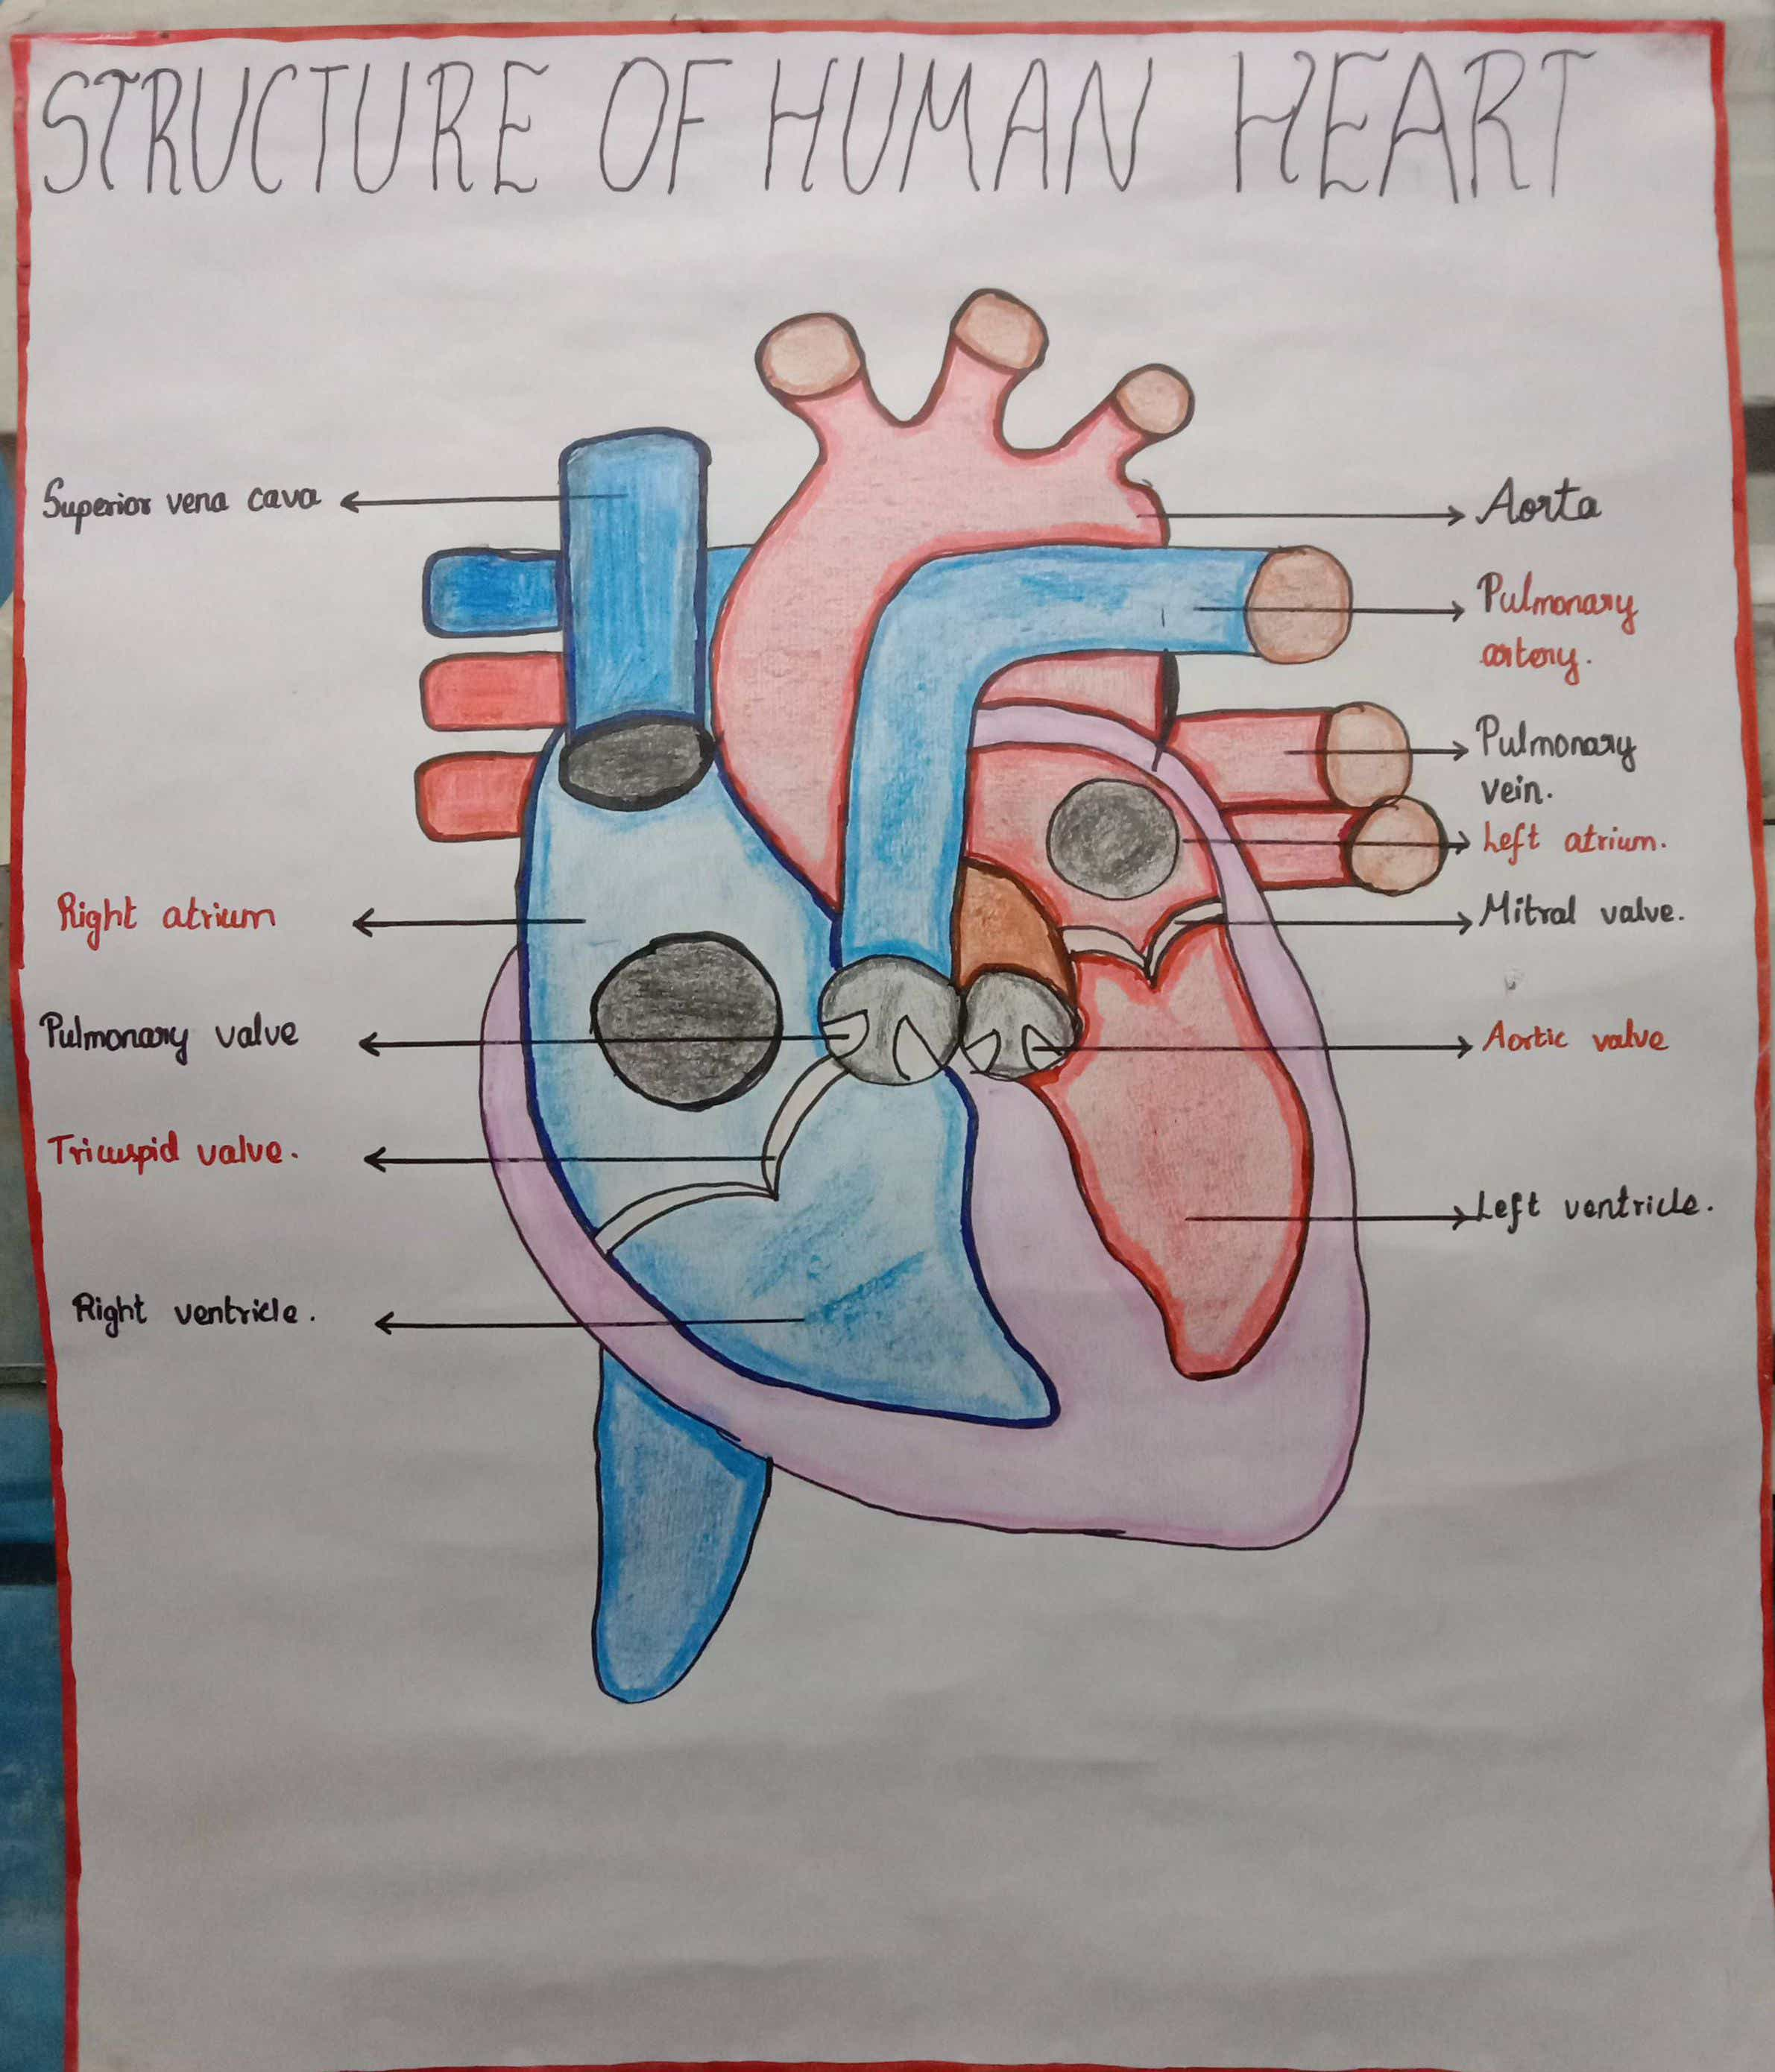 STRUCTURE OF HUMAN HEART
Superior vena cava
Aorta
Pulmonary
artery.
Pulmonary
vein.
Left atrium.
Right atrium
Mitral valve.
Pulmonary valve
Aortic valve
Tricuspid valve.
Left ventricle.
Right ventricle.